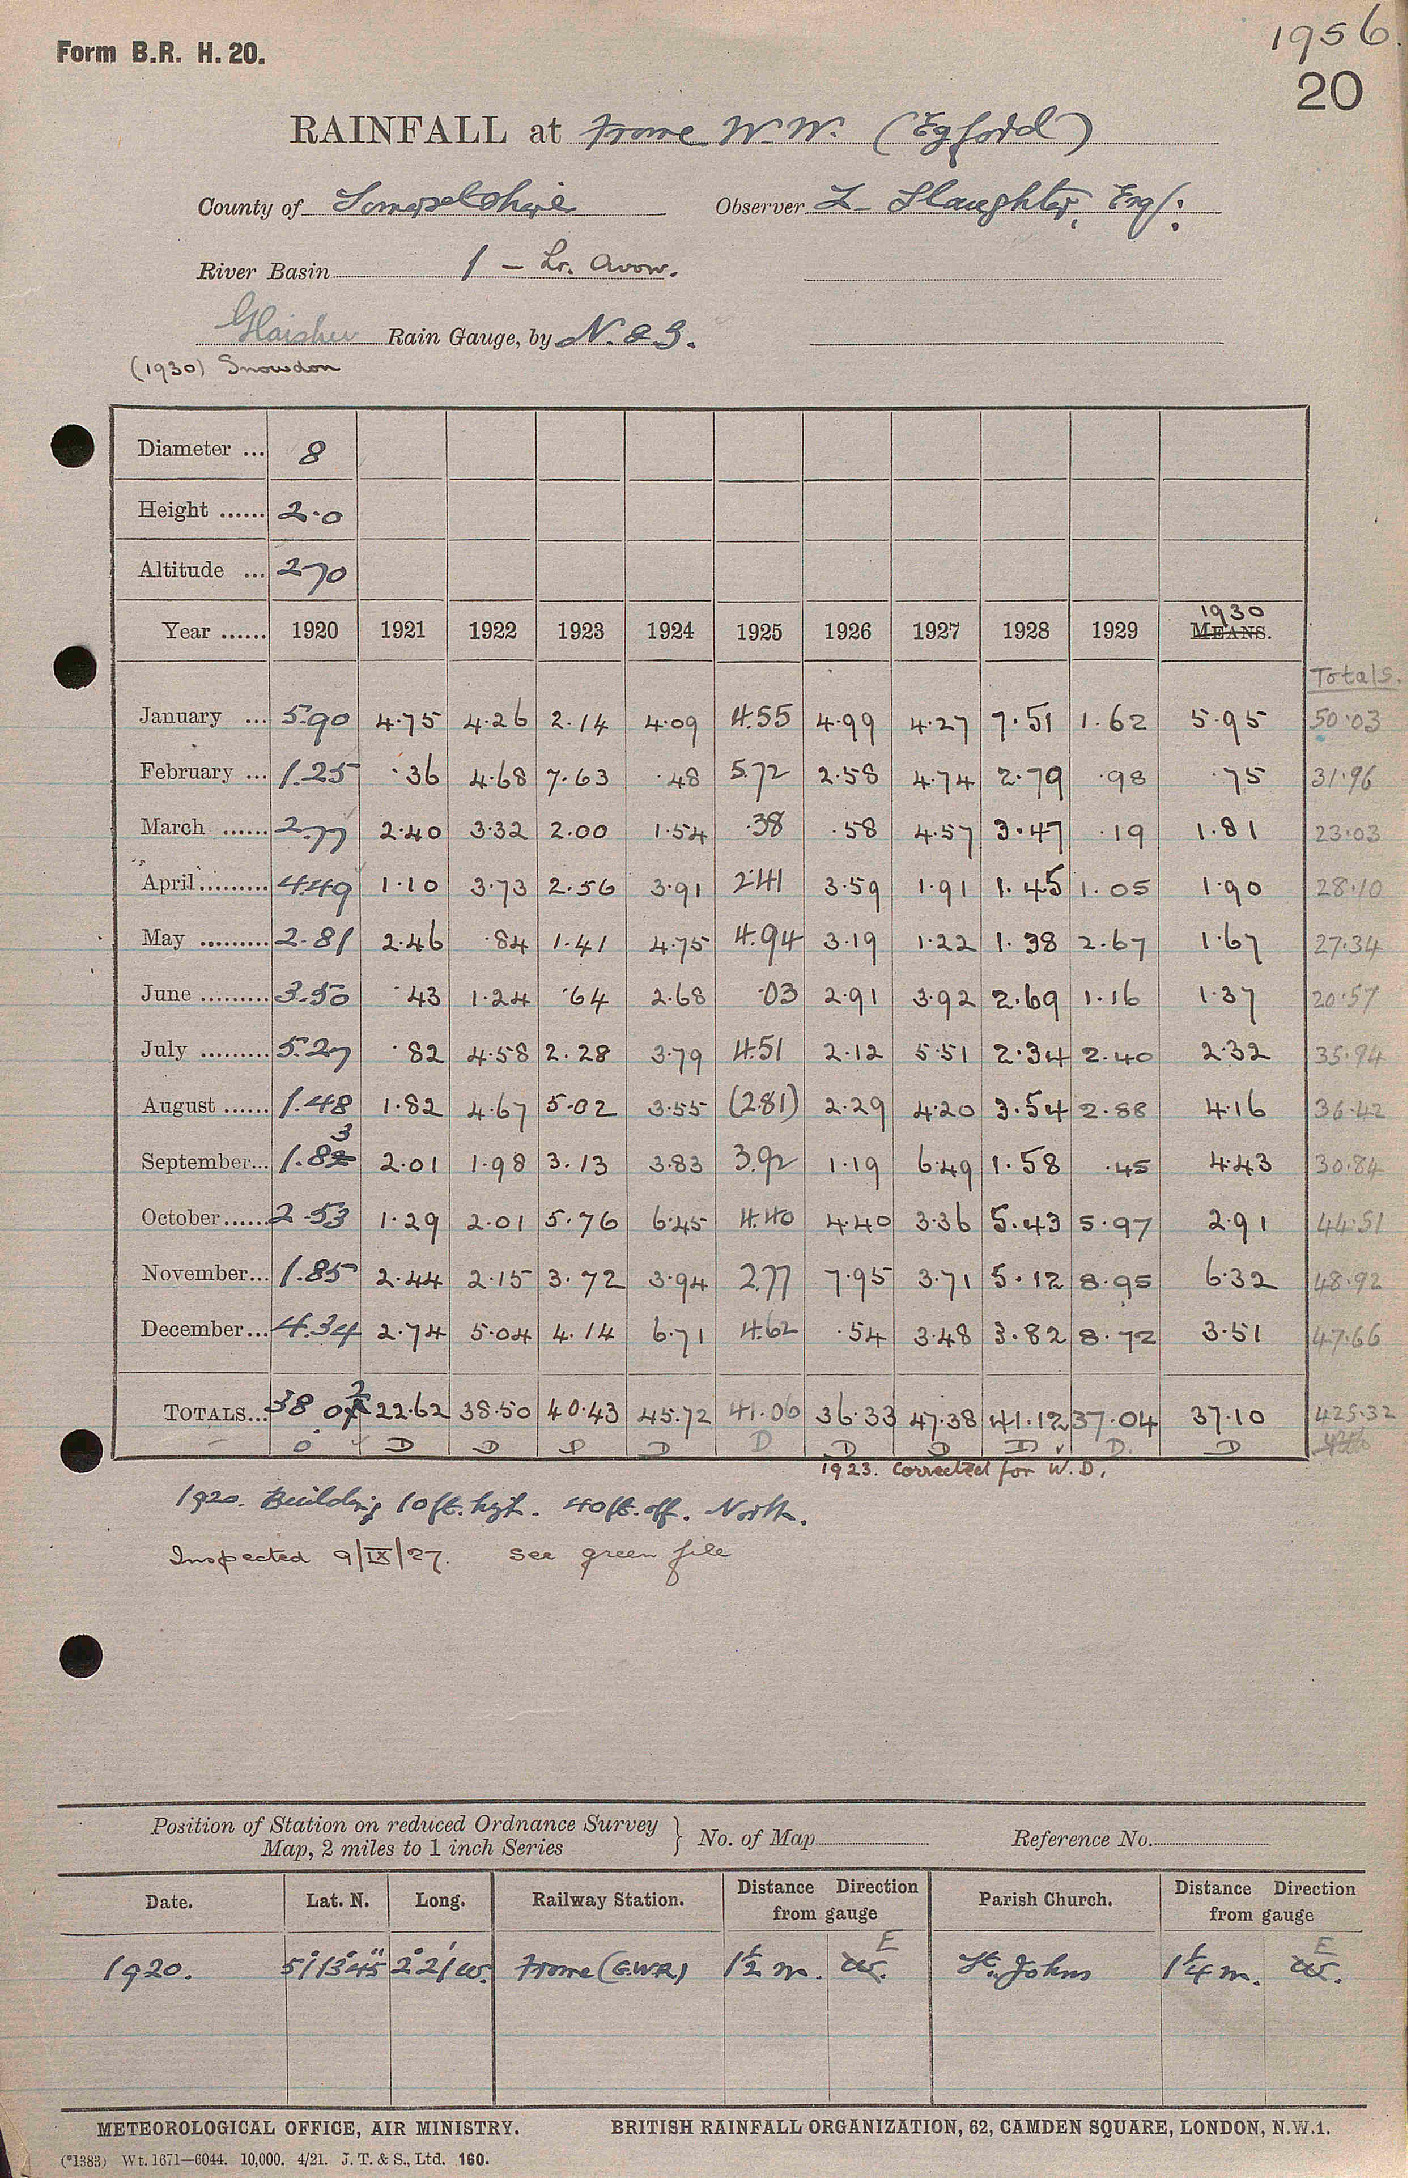 1956.
Form B.R. H. 20.
20
RAINFALL at Frome W.W. (Egford)
County of Somersetshire Observer L. Slaughter, Esq:
River Basin 1 - Lr. Avon.
Glaisher Rain Gauge, by N. & Z.
(1930) Snowdon
Diameter ... 8
Height ...... 2.0
Altitude ... 270
Year ...... 1920 1921 1922 1923 1924 1925 1926 1927 1928 1929 1930 MEANS.
Totals.
January ... 5.90 4.75 4.26 2.14 4.09 4.55 4.99 4.27 7.51 1.62 5.95 50.03
February ... 1.25 .36 4.68 7.63 .48 5.72 2.58 4.74 2.79 .98 .75 31.96
March ...... 2.77 2.40 3.32 2.00 1.54 .38 .58 4.57 3.47 .19 1.81 23.03
April ......... 4.49 1.10 3.73 2.56 3.91 2.41 3.59 1.91 1.45 1.05 1.90 28.10
May ......... 2.81 2.46 .84 1.41 4.75 4.94 3.19 1.22 1.38 2.67 1.67 27.34
June ......... 3.50 .43 1.24 .64 2.68 .03 2.91 3.92 2.69 1.16 1.37 20.57
July ......... 5.27 .82 4.58 2.28 3.79 4.51 2.12 5.51 2.34 2.40 2.32 35.94
August ...... 1.48 1.82 4.67 5.02 3.55 (2.81) 2.29 4.20 3.54 2.88 4.16 36.42
September... 1.83 2.01 1.98 3.13 3.83 3.92 1.19 6.49 1.58 .45 4.43 30.84
October ...... 2.53 1.29 2.01 5.76 6.45 4.40 4.40 3.36 5.43 5.97 2.91 44.51
November... 1.85 2.44 2.15 3.72 3.94 2.77 7.95 3.71 5.12 8.95 6.32 48.92
December... 4.34 2.74 5.04 4.14 6.71 4.62 .54 3.48 3.82 8.72 3.51 47.66
TOTALS... 38.02 22.62 38.50 40.43 45.72 41.06 36.33 47.38 41.12 37.04 37.10 425.32
0 D D D D D D D D D. D
1923. Corrected for W.D.
1920. Building 10 ft. high. 40 ft. off. North.
Inspected 9/IX/27. See green file
Position of Station on reduced Ordnance Survey Map, 2 miles to 1 inch Series } No. of Map Reference No.
Date. Lat. N. Long. Railway Station. Distance Direction from gauge Parish Church. Distance Direction from gauge
1920. 51°13'45" 2°21'W. Frome (G.W.R) 1½ m. W. E St. Johns 1¼ m. W. E
METEOROLOGICAL OFFICE, AIR MINISTRY. BRITISH RAINFALL ORGANIZATION, 62, CAMDEN SQUARE, LONDON, N.W.1.
(*1383) Wt. 1671—6044. 10,000. 4/21. J. T. & S., Ltd. 160.